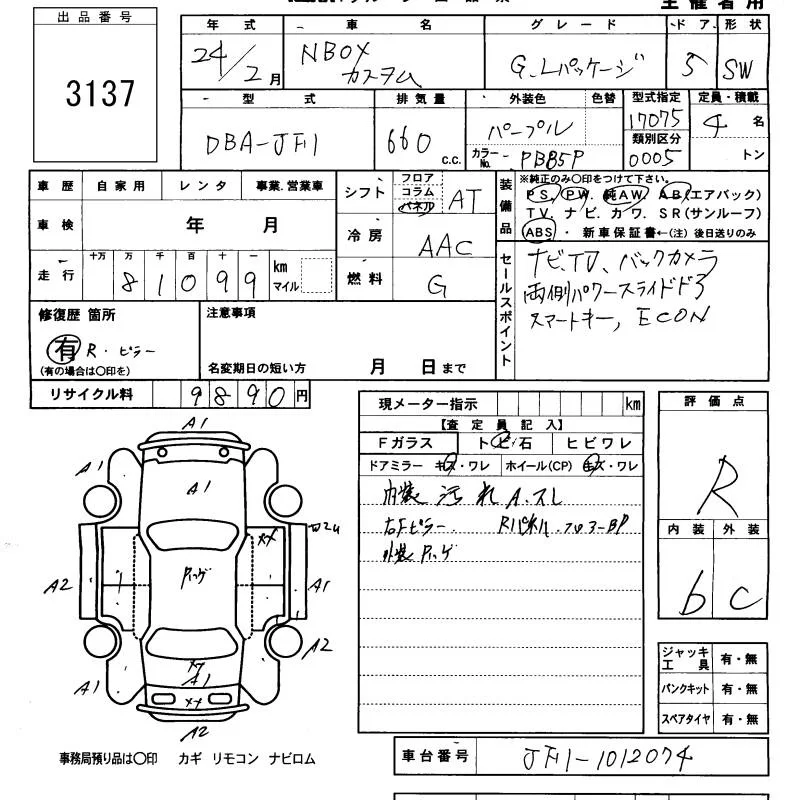 主催者用
出品番号
3137
年式 車名 グレード ドア 形状
24/2月 NBOX カスタム G.Lパッケージ 5 SW
型式 排気量 外装色 色替 型式指定 定員・積載
DBA-JF1 660 c.c. パープル 17075 4名
カラーNo. PB85P 類別区分 0005 トン
車歴 自家用 レンタ 事業.営業車
車検 年 月
走行 十万 万 千 百 十 一
81099 km マイル
シフト フロア コラム パネル AT
冷房 AAC
燃料 G
装備品
※純正のみ○印をつけて下さい。
PS. PW. 純AW. AB(エアバック)
TV. ナビ. カワ. SR(サンルーフ)
ABS ・ 新車保証書←(注)後日送りのみ
セールスポイント
ナビ.TV、バックカメラ
両側パワースライドドア
スマートキー, ECON
修復歴 箇所
有 R・ピラー
(有の場合は○印を)
注意事項
名変期日の短い方 月 日まで
リサイクル料 9890円
現メーター指示 km
【査定員記入】
Fガラス トビ石 ヒビワレ
ドアミラー キズ・ワレ ホイール(CP) キズ・ワレ
内装 汚れ A.スレ
右Fピラー. Rパネル.フロアーBP
外装
評価点
R
内装 外装
b C
ジャッキ工具 有・無
パンクキット 有・無
スペアタイヤ 有・無
A1
A1
A1
A2
A1
A2
A1
A1
A2
事務局預り品は○印 カギ リモコン ナビロム
車台番号 JF1-1012074